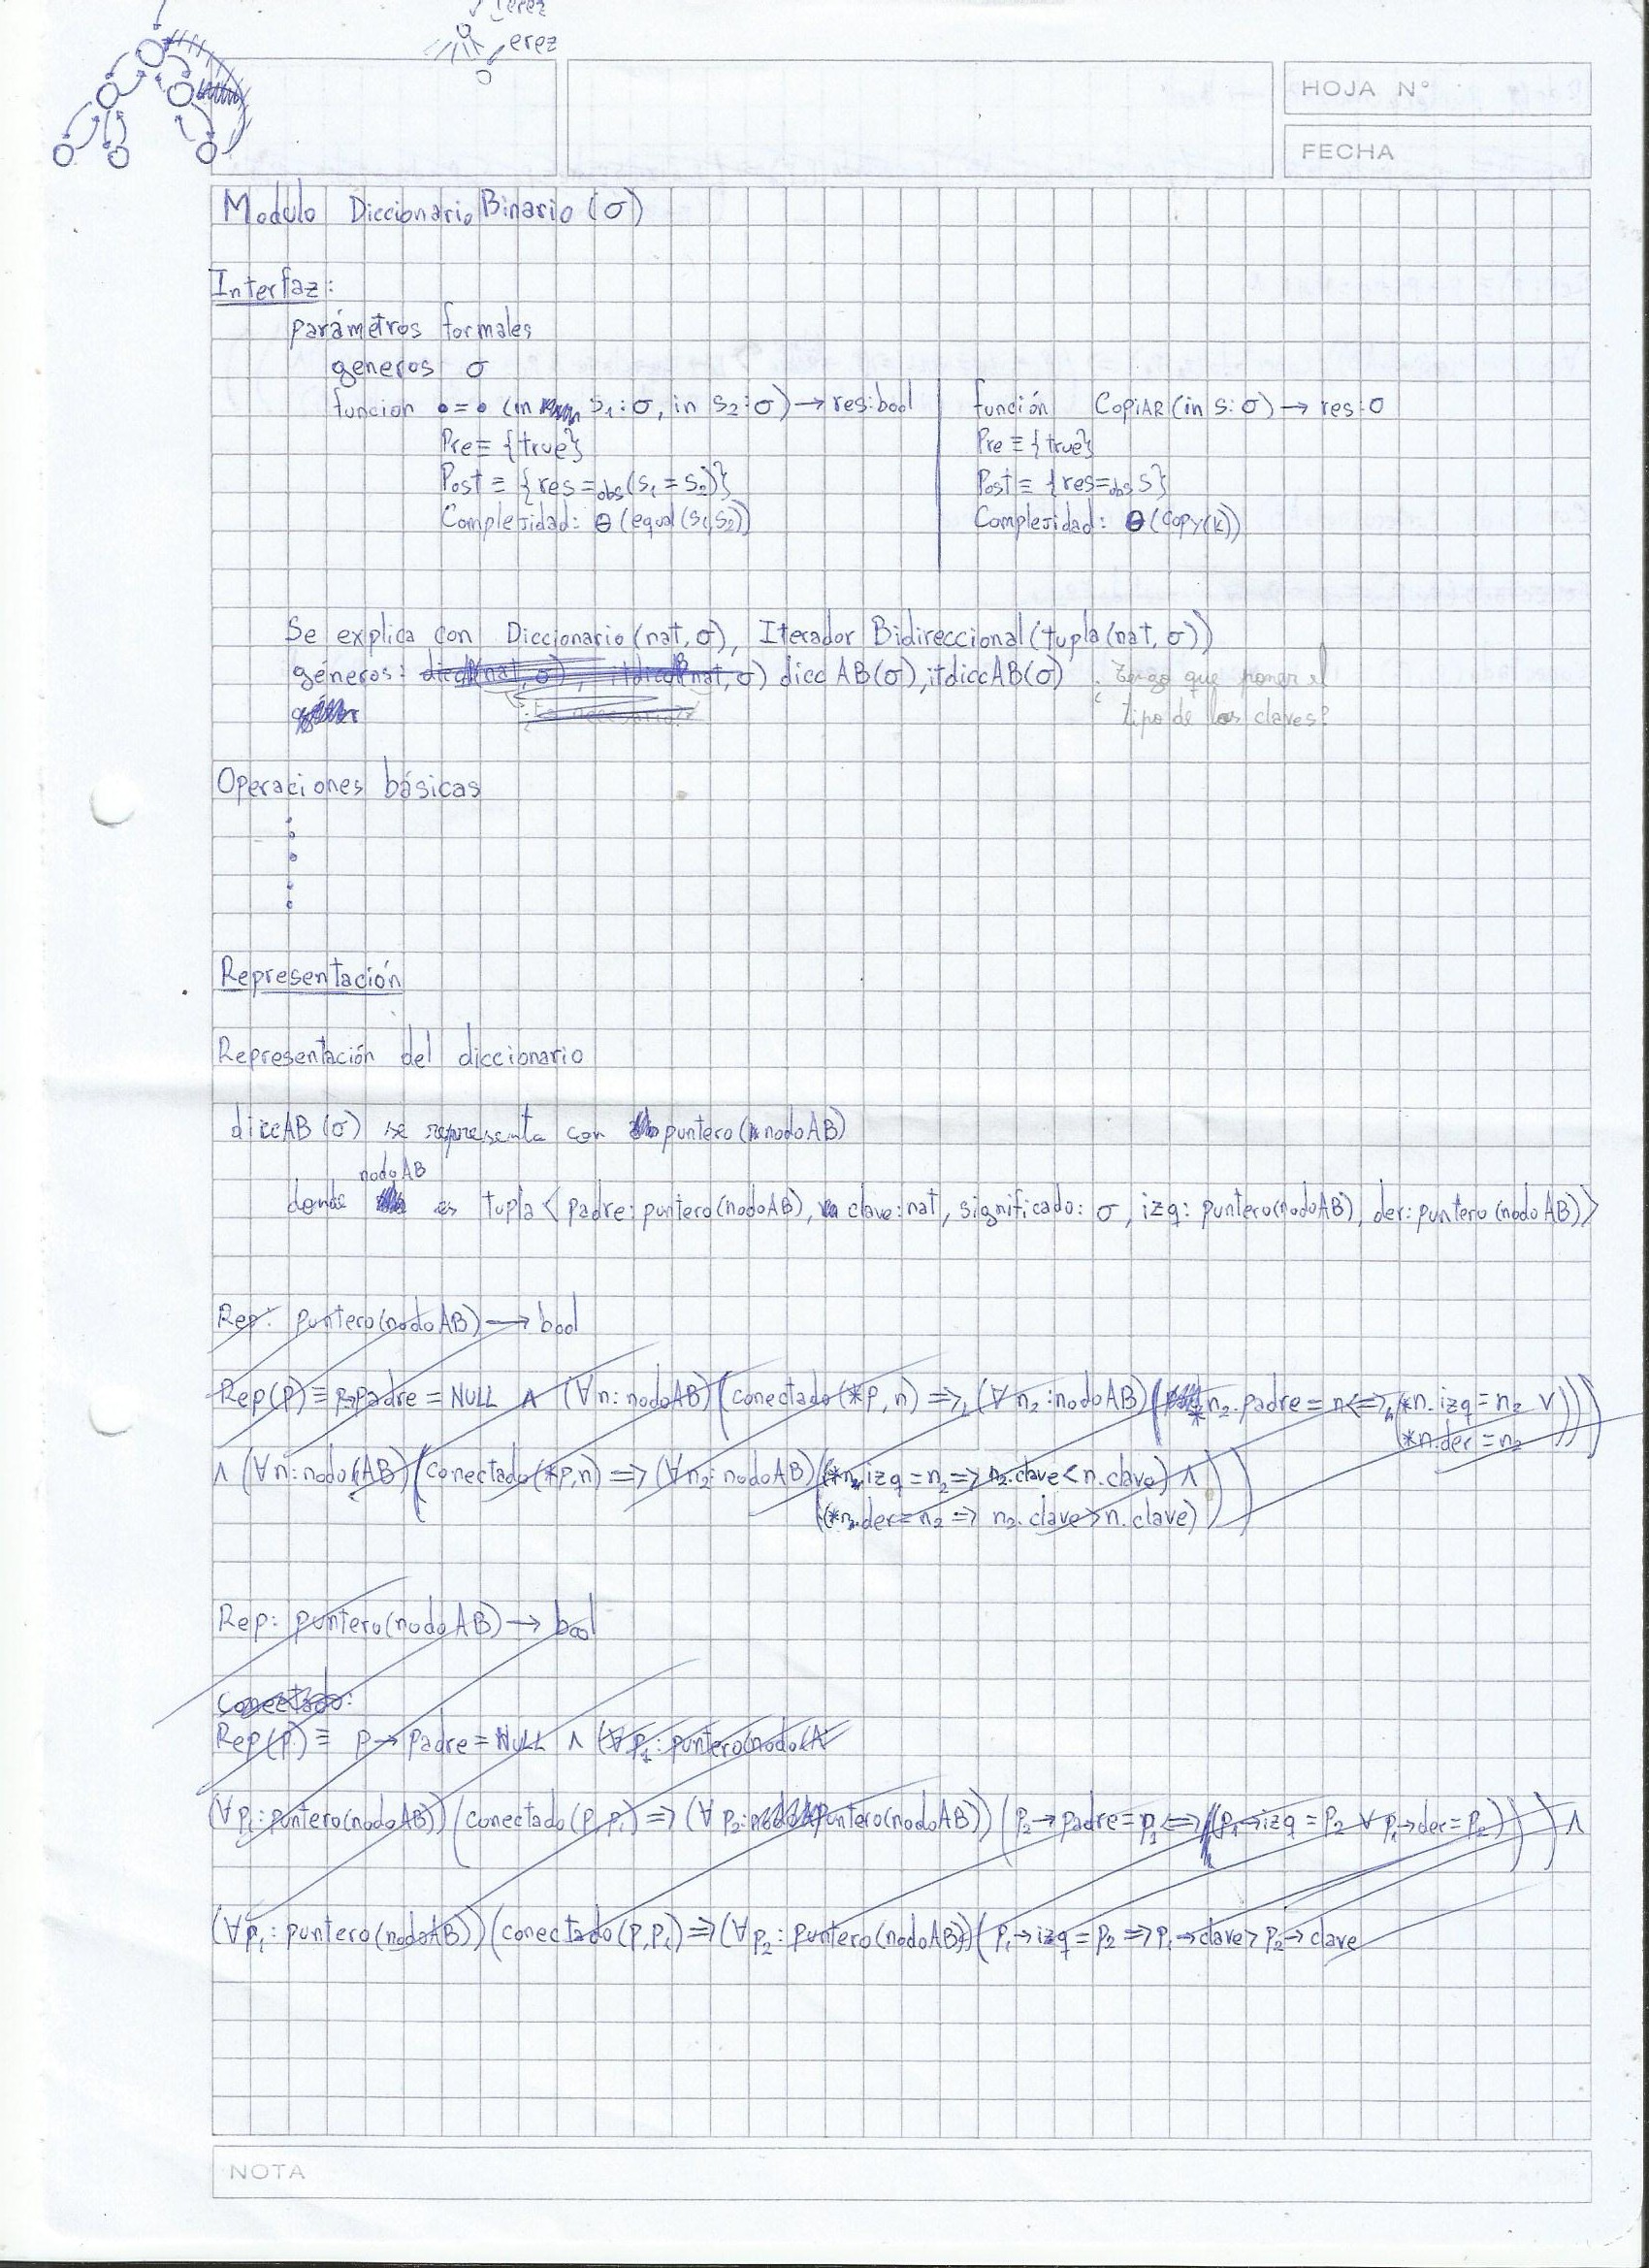 Jerez
erez
HOJA N°
FECHA
Modulo Diccionario Binario (σ)
Interfaz:
parámetros formales
generos σ
funcion •=• (in s₁:σ, in s₂:σ) → res:bool
Pre ≡ {true}
Post ≡ {res =obs (s₁ = s₂)}
Complejidad: Θ(equal(s₁,s₂))
función COPIAR (in s: σ) → res:σ
Pre ≡ {true}
Post ≡ {res =obs s}
Complejidad: Θ(copy(k))
Se explica con Diccionario(nat, σ), Iterador Bidireccional(tupla(nat, σ))
géneros: diccAB(σ), itdiccAB(σ) ¿Tengo que poner el
tipo de las claves?
Operaciones básicas
Representación
Representación del diccionario
diccAB(σ) se representa con puntero(nodoAB)
donde nodoAB es tupla<padre: puntero(nodoAB), clave:nat, significado: σ, izq: puntero(nodoAB), der: puntero(nodoAB)>
Rep: puntero(nodoAB) → bool
Rep(p) ≡ p→padre = NULL ∧ (∀n: nodoAB)(conectado(*p, n) ⇒ (∀n₂: nodoAB)(*n₂.padre = n ⇔ (*n.izq = n₂ ∨
(*n.der = n₂)))
∧ (∀n: nodo(AB)(conectado(*p,n) ⇒ (∀n₂: nodoAB)((*n.izq = n₂ ⇒ n₂.clave < n.clave) ∧
(*n.der = n₂ ⇒ n₂.clave > n.clave)))
Rep: puntero(nodoAB) → bool
conectado:
Rep(p) ≡ p→padre = NULL ∧ (∀p₁: puntero(nodo(A
(∀p₁: puntero(nodoAB))(conectado(p,p₁) ⇒ (∀p₂: puntero(nodoAB))(p₂→padre = p₁ ⇔ (p₁→izq = p₂ ∨ p₁→der = p₂))) ∧
(∀p₁: puntero(nodoAB))(conectado(p,p₁) ⇒ (∀p₂: puntero(nodoAB))(p₁→izq = p₂ ⇒ p₁→clave > p₂→clave
NOTA